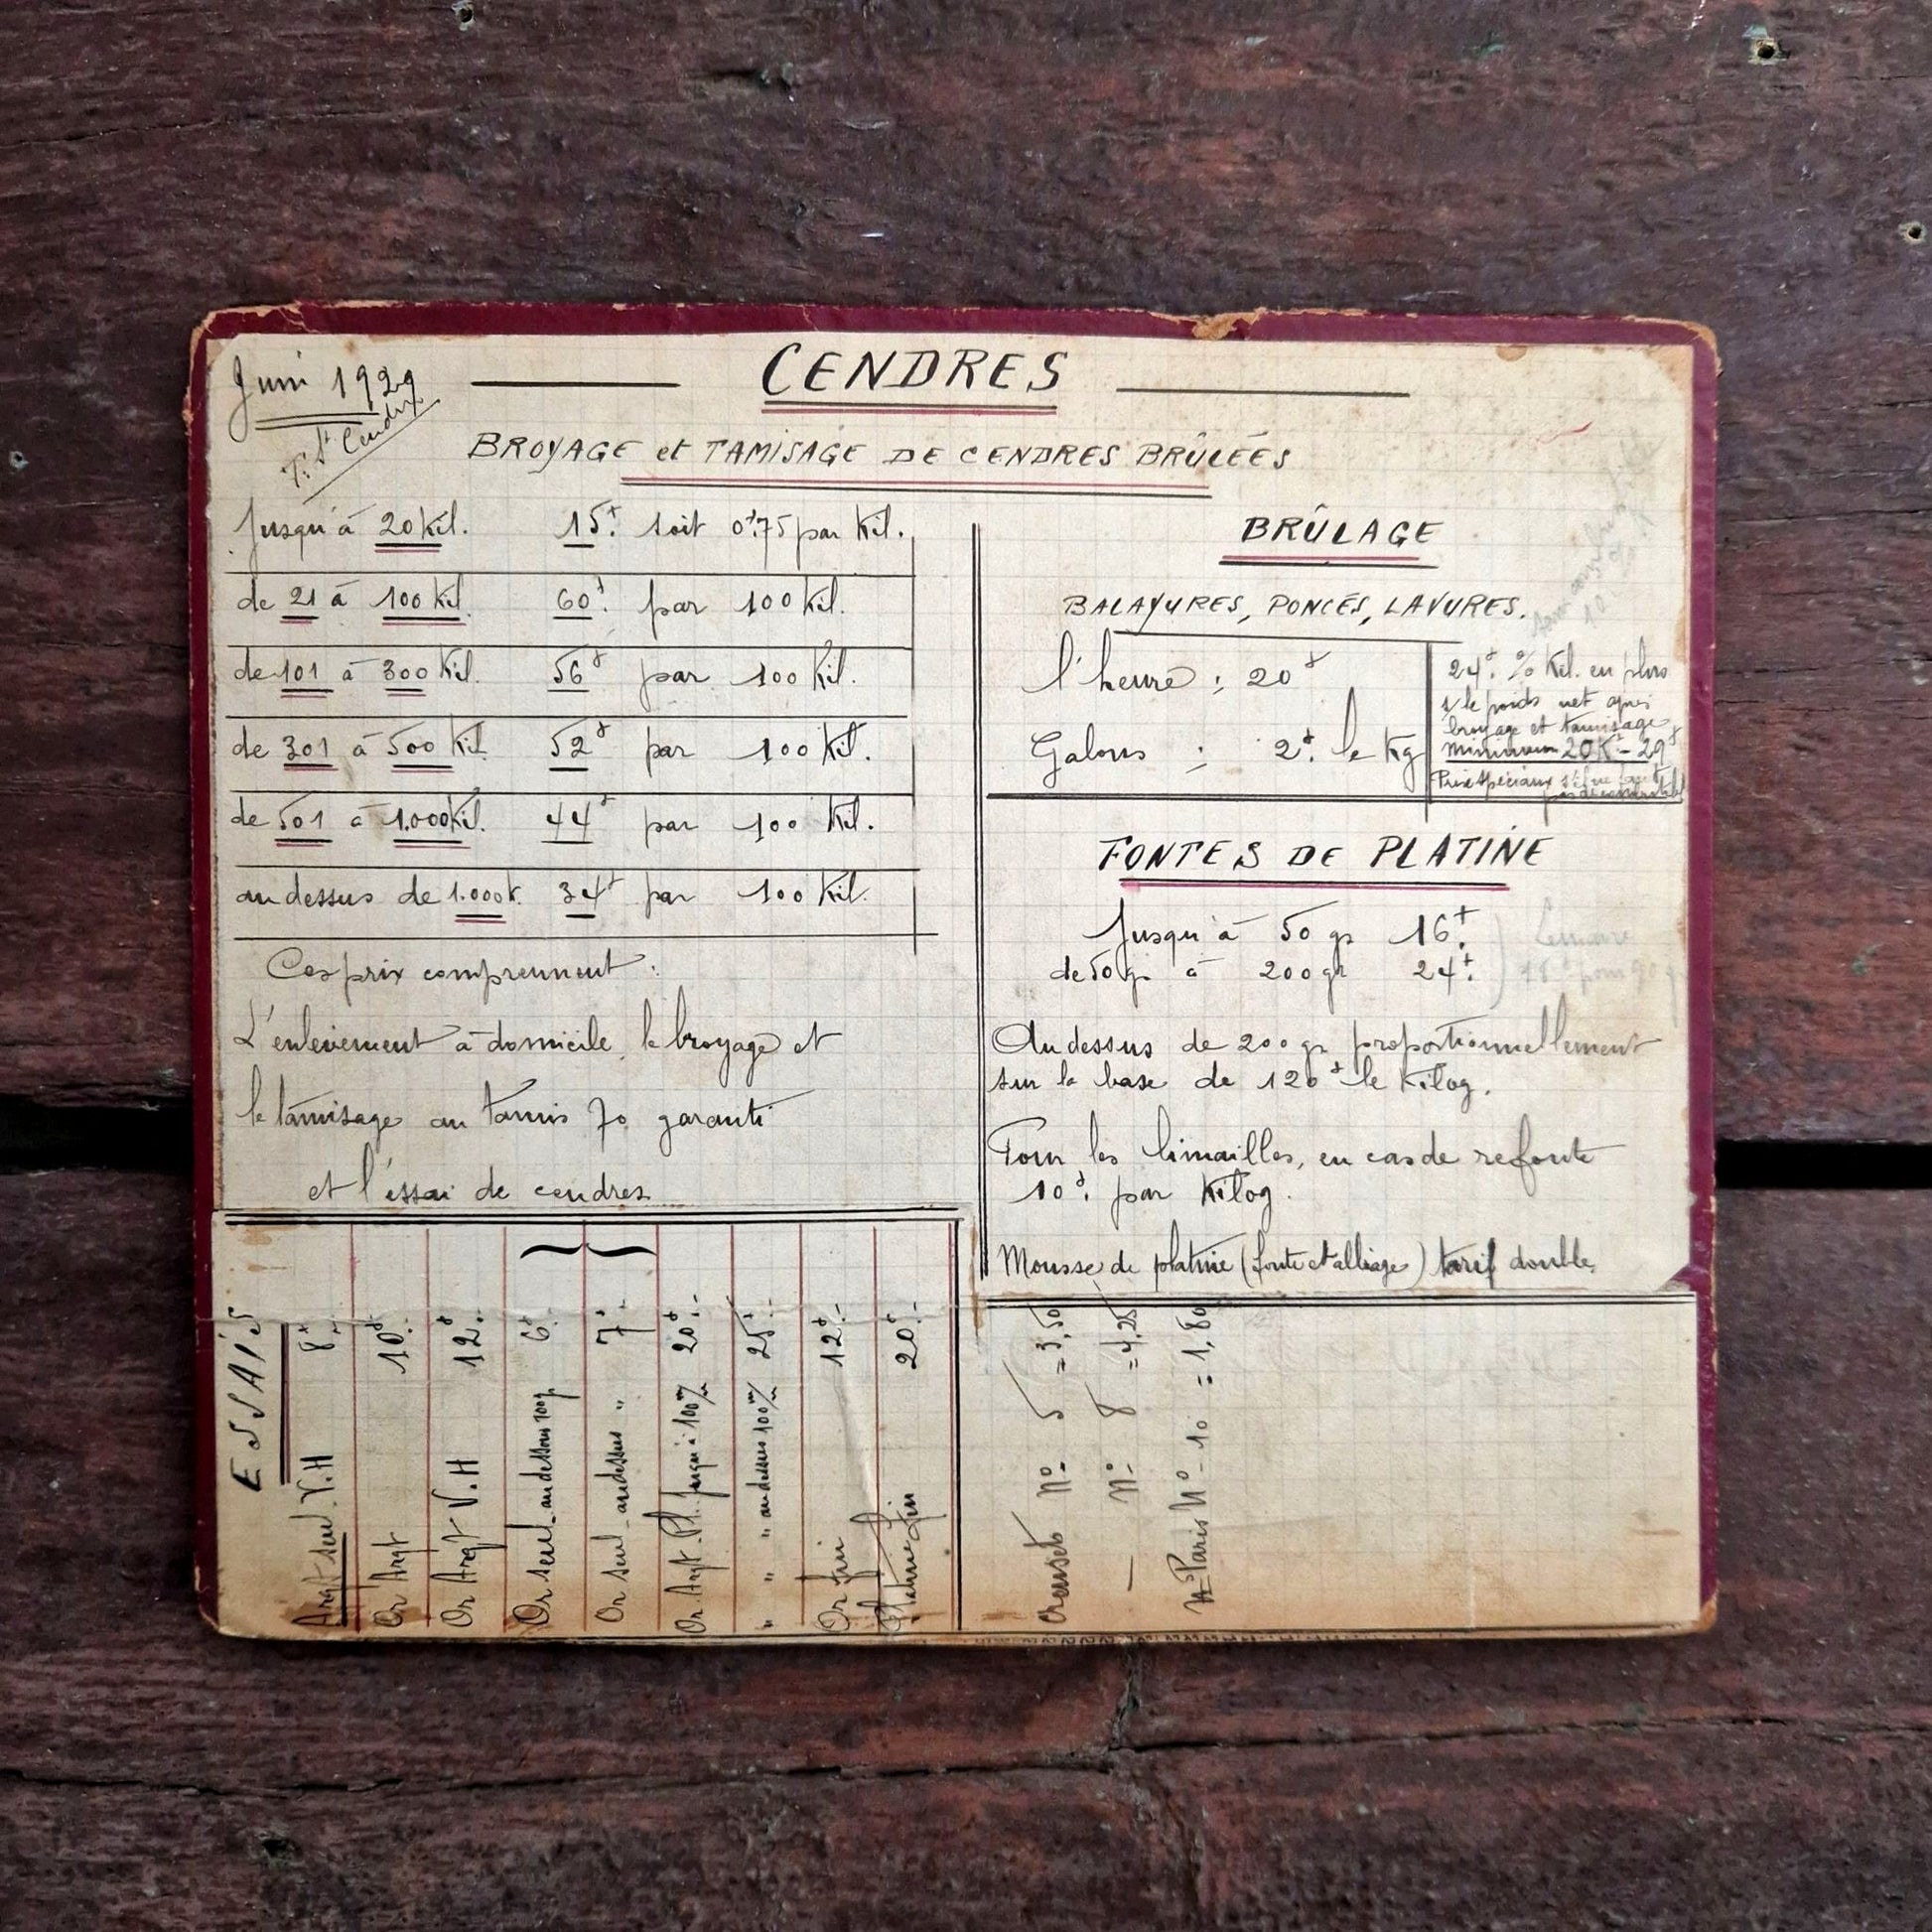 Juin 1929
CENDRES
BROYAGE et TAMISAGE DE CENDRES BRÛLÉES
Jusqu'à 20 Kil. 15f. soit 0f75 par Kil.
de 21 à 100 Kil. 60f. par 100 Kil.
de 101 à 300 Kil. 56f par 100 Kil.
de 301 à 500 Kil. 52f par 100 Kil.
de 501 à 1.000 Kil. 44f par 100 Kil.
au dessus de 1.000 k. 34f par 100 Kil.
Ces prix comprennent :
L'enlèvement à domicile, le broyage et
le tamisage au tamis 70 garanti
et l'essai de cendres
BRÛLAGE
BALAYURES, PONCÉS, LAVURES.
l'heure : 20f
Galons : 2f. le Kg
24f. % Kil. en plus
s/ le poids net après
broyage et tamisage
Minimum 20K - 29f
Prix spéciaux
FONTES DE PLATINE
Jusqu'à 50 gr 16f.
de 50 gr à 200 gr 24f.
Lemaire
Au dessus de 200 gr proportionnellement
sur la base de 120f le Kilog.
Pour les limailles, en cas de refonte
10f. par Kilog.
Mousse de platine (fonte et alliage) tarif double
ESSAIS
Argt seul V.H 8f.-
Or Argt 10f.
Or Argt V.H 12f.
Or seul - au dessous 100gr 6f.
Or seul - au dessus " 7f.-
Or Argt - Pl. jusqu'à 100 m/m 20f.-
" " " au dessus 100 m/m 25f.-
Or fin 12f.-
Platine fin 20f.-
Creusets N°- 5 = 3,50
— N°- 8 = 4,25
Paris N°- 10 = 1,80